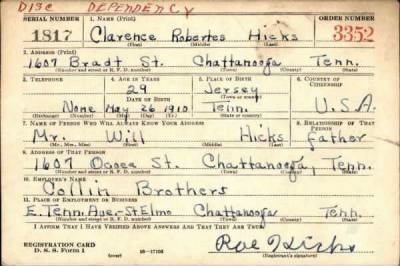 DISC DEPENDENCY
SERIAL NUMBER 1. NAME (Print) ORDER NUMBER
1817 Clarence Robertes Hicks 3352
(First) (Middle) (Last)
2. ADDRESS (Print)
1607 Bradt St. Chattanooga Tenn.
(Number and street or R. F. D. number) (Town) (County) (State)
3. TELEPHONE 4. AGE IN YEARS 5. PLACE OF BIRTH 6. COUNTRY OF CITIZENSHIP
29 Jersey
DATE OF BIRTH (Town or county)
None May 26 1910 Tenn. U.S.A
(Exchange) (Number) (Mo.) (Day) (Yr.) (State or country)
7. NAME OF PERSON WHO WILL ALWAYS KNOW YOUR ADDRESS 8. RELATIONSHIP OF THAT PERSON
Mr. Will Hicks Father
(Mr., Mrs., Miss) (First) (Middle) (Last)
9. ADDRESS OF THAT PERSON
1607 St. Chattanooga, Tenn.
(Number and street or R. F. D. number) (Town) (County) (State)
10. EMPLOYER'S NAME
Collin Brothers
11. PLACE OF EMPLOYMENT OR BUSINESS
E. Tenn. Ave.-St. Elmo Chattanooga Tenn.
(Number and street or R. F. D. number) (Town) (County) (State)
I AFFIRM THAT I HAVE VERIFIED ABOVE ANSWERS AND THAT THEY ARE TRUE.
REGISTRATION CARD
D. S. S. Form 1 (over) (Registrant's signature)
Hicks